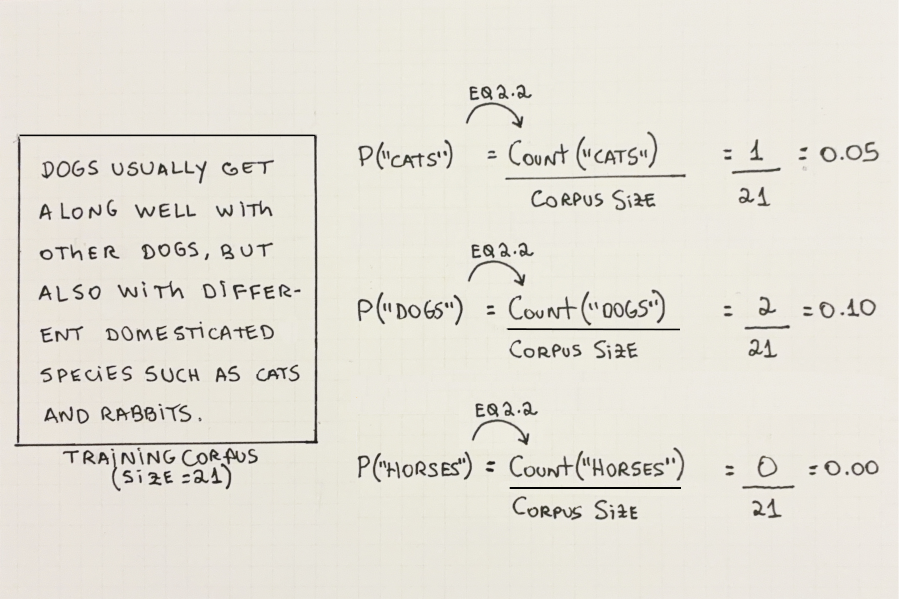 DOGS USUALLY GET
ALONG WELL WITH
OTHER DOGS, BUT
ALSO WITH DIFFER-
ENT DOMESTICATED
SPECIES SUCH AS CATS
AND RABBITS.
TRAINING CORPUS
(SIZE=21)
EQ 2.2
P("CATS") = COUNT ("CATS") = 1 = 0.05
CORPUS SIZE 21
EQ 2.2
P("DOGS") = COUNT ("DOGS") = 2 = 0.10
CORPUS SIZE 21
EQ 2.2
P("HORSES") = COUNT("HORSES") = 0 = 0.00
CORPUS SIZE 21